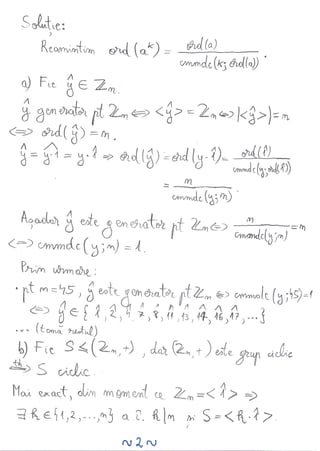 Soluție:
Reamintim ord(a^k) = ord(a) / cmmdc(k; ord(a)).
a) Fie ŷ ∈ ℤn.
ŷ generator pt ℤn ⇔ <ŷ> = ℤn ⇔ |<ŷ>| = n
⇔ ord(ŷ) = n.
ŷ = y·1̂ = y·1̂ ⇒ ord(ŷ) = ord(y·1̂) = ord(1̂) / cmmdc(y; ord(1̂))
= n / cmmdc(y; n).
Așadar ŷ este generator pt ℤn ⇔ n / cmmdc(y; n) = n
⇔ cmmdc(y; n) = 1.
Prin urmare:
• pt n = 45, ŷ este generator pt ℤn ⇔ cmmdc(y; 45) = 1
⇔ ŷ ∈ {1̂, 2̂, 4̂, 7̂, 8̂, 11̂, 13̂, 14̂, 16̂, 17̂, ...}
... (temă restul)
b) Fie S ≤ (ℤn, +), dar (ℤn, +) este grup ciclic
th ⇒ S ciclic.
Mai exact, din moment ce ℤn = <1̂> ⇒
∃ k ∈ {1, 2, ..., n} a. î. k|n și S = <k·1̂>.
~2~